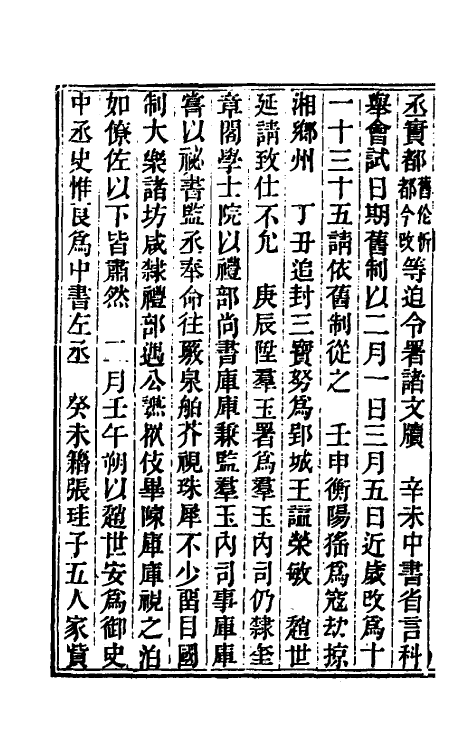 丞實都舊伦忻都今改等迫令署諸文牘　辛未中書省言科
舉會試日期舊制以二月一日三月五日近歲改爲十
一十三十五請依舊制從之　壬申衡陽猺爲寇劫掠
湘鄉州　丁丑追封三寶努爲郢城王諡榮敏　趙世
延請致仕不允　庚辰陞羣玉署爲羣玉內司仍隸奎
章閣學士院以禮部尚書庫庫兼監羣玉內司事庫庫
嘗以祕書監丞奉命往覈泉舶芥視珠犀不少留目國
制大樂諸坊咸隸禮部遇公讌衆伎畢陳庫庫視之泊
如僚佐以下皆肅然　二月壬午朔以趙世安爲御史
中丞史惟良爲中書左丞　癸未籍張珪子五人家貲